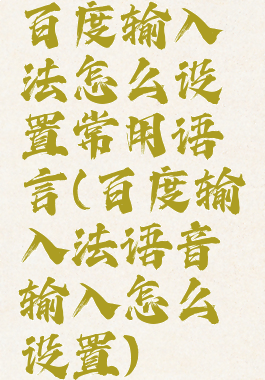 百度输入
法怎么设
置常用语
言(百度输
入法语音
输入怎么
设置)